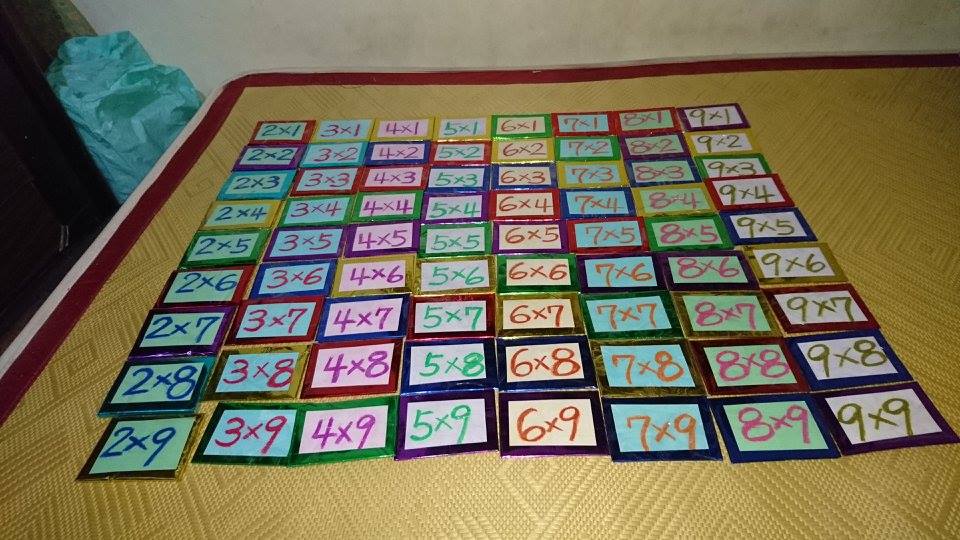 2×1 3×1 4×1 5×1 6×1 7×1 8×1 9×1
2×2 3×2 4×2 5×2 6×2 7×2 8×2 9×2
2×3 3×3 4×3 5×3 6×3 7×3 8×3 9×3
2×4 3×4 4×4 5×4 6×4 7×4 8×4 9×4
2×5 3×5 4×5 5×5 6×5 7×5 8×5 9×5
2×6 3×6 4×6 5×6 6×6 7×6 8×6 9×6
2×7 3×7 4×7 5×7 6×7 7×7 8×7 9×7
2×8 3×8 4×8 5×8 6×8 7×8 8×8 9×8
2×9 3×9 4×9 5×9 6×9 7×9 8×9 9×9